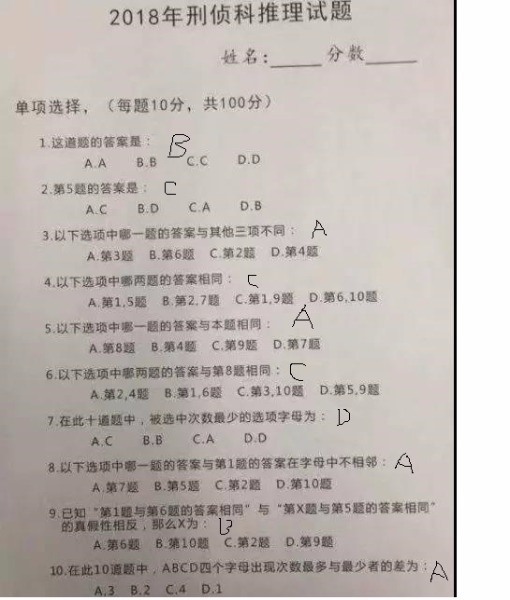 2018年刑侦科推理试题
姓名:_____ 分数_____
单项选择，（每题10分，共100分）
1.这道题的答案是： B
A.A B.B C.C D.D
2.第5题的答案是： C
A.C B.D C.A D.B
3.以下选项中哪一题的答案与其他三项不同： A
A.第3题 B.第6题 C.第2题 D.第4题
4.以下选项中哪两题的答案相同： C
A.第1,5题 B.第2,7题 C.第1,9题 D.第6,10题
5.以下选项中哪一题的答案与本题相同： A
A.第8题 B.第4题 C.第9题 D.第7题
6.以下选项中哪两题的答案与第8题相同： C
A.第2,4题 B.第1,6题 C.第3,10题 D.第5,9题
7.在此十道题中，被选中次数最少的选项字母为： D
A.C B.B C.A D.D
8.以下选项中哪一题的答案与第1题的答案在字母中不相邻： A
A.第7题 B.第5题 C.第2题 D.第10题
9.已知“第1题与第6题的答案相同”与“第X题与第5题的答案相同”
的真假性相反，那么X为： B
A.第6题 B.第10题 C.第2题 D.第9题
10.在此10道题中，ABCD四个字母出现次数最多与最少者的差为： A
A.3 B.2 C.4 D.1